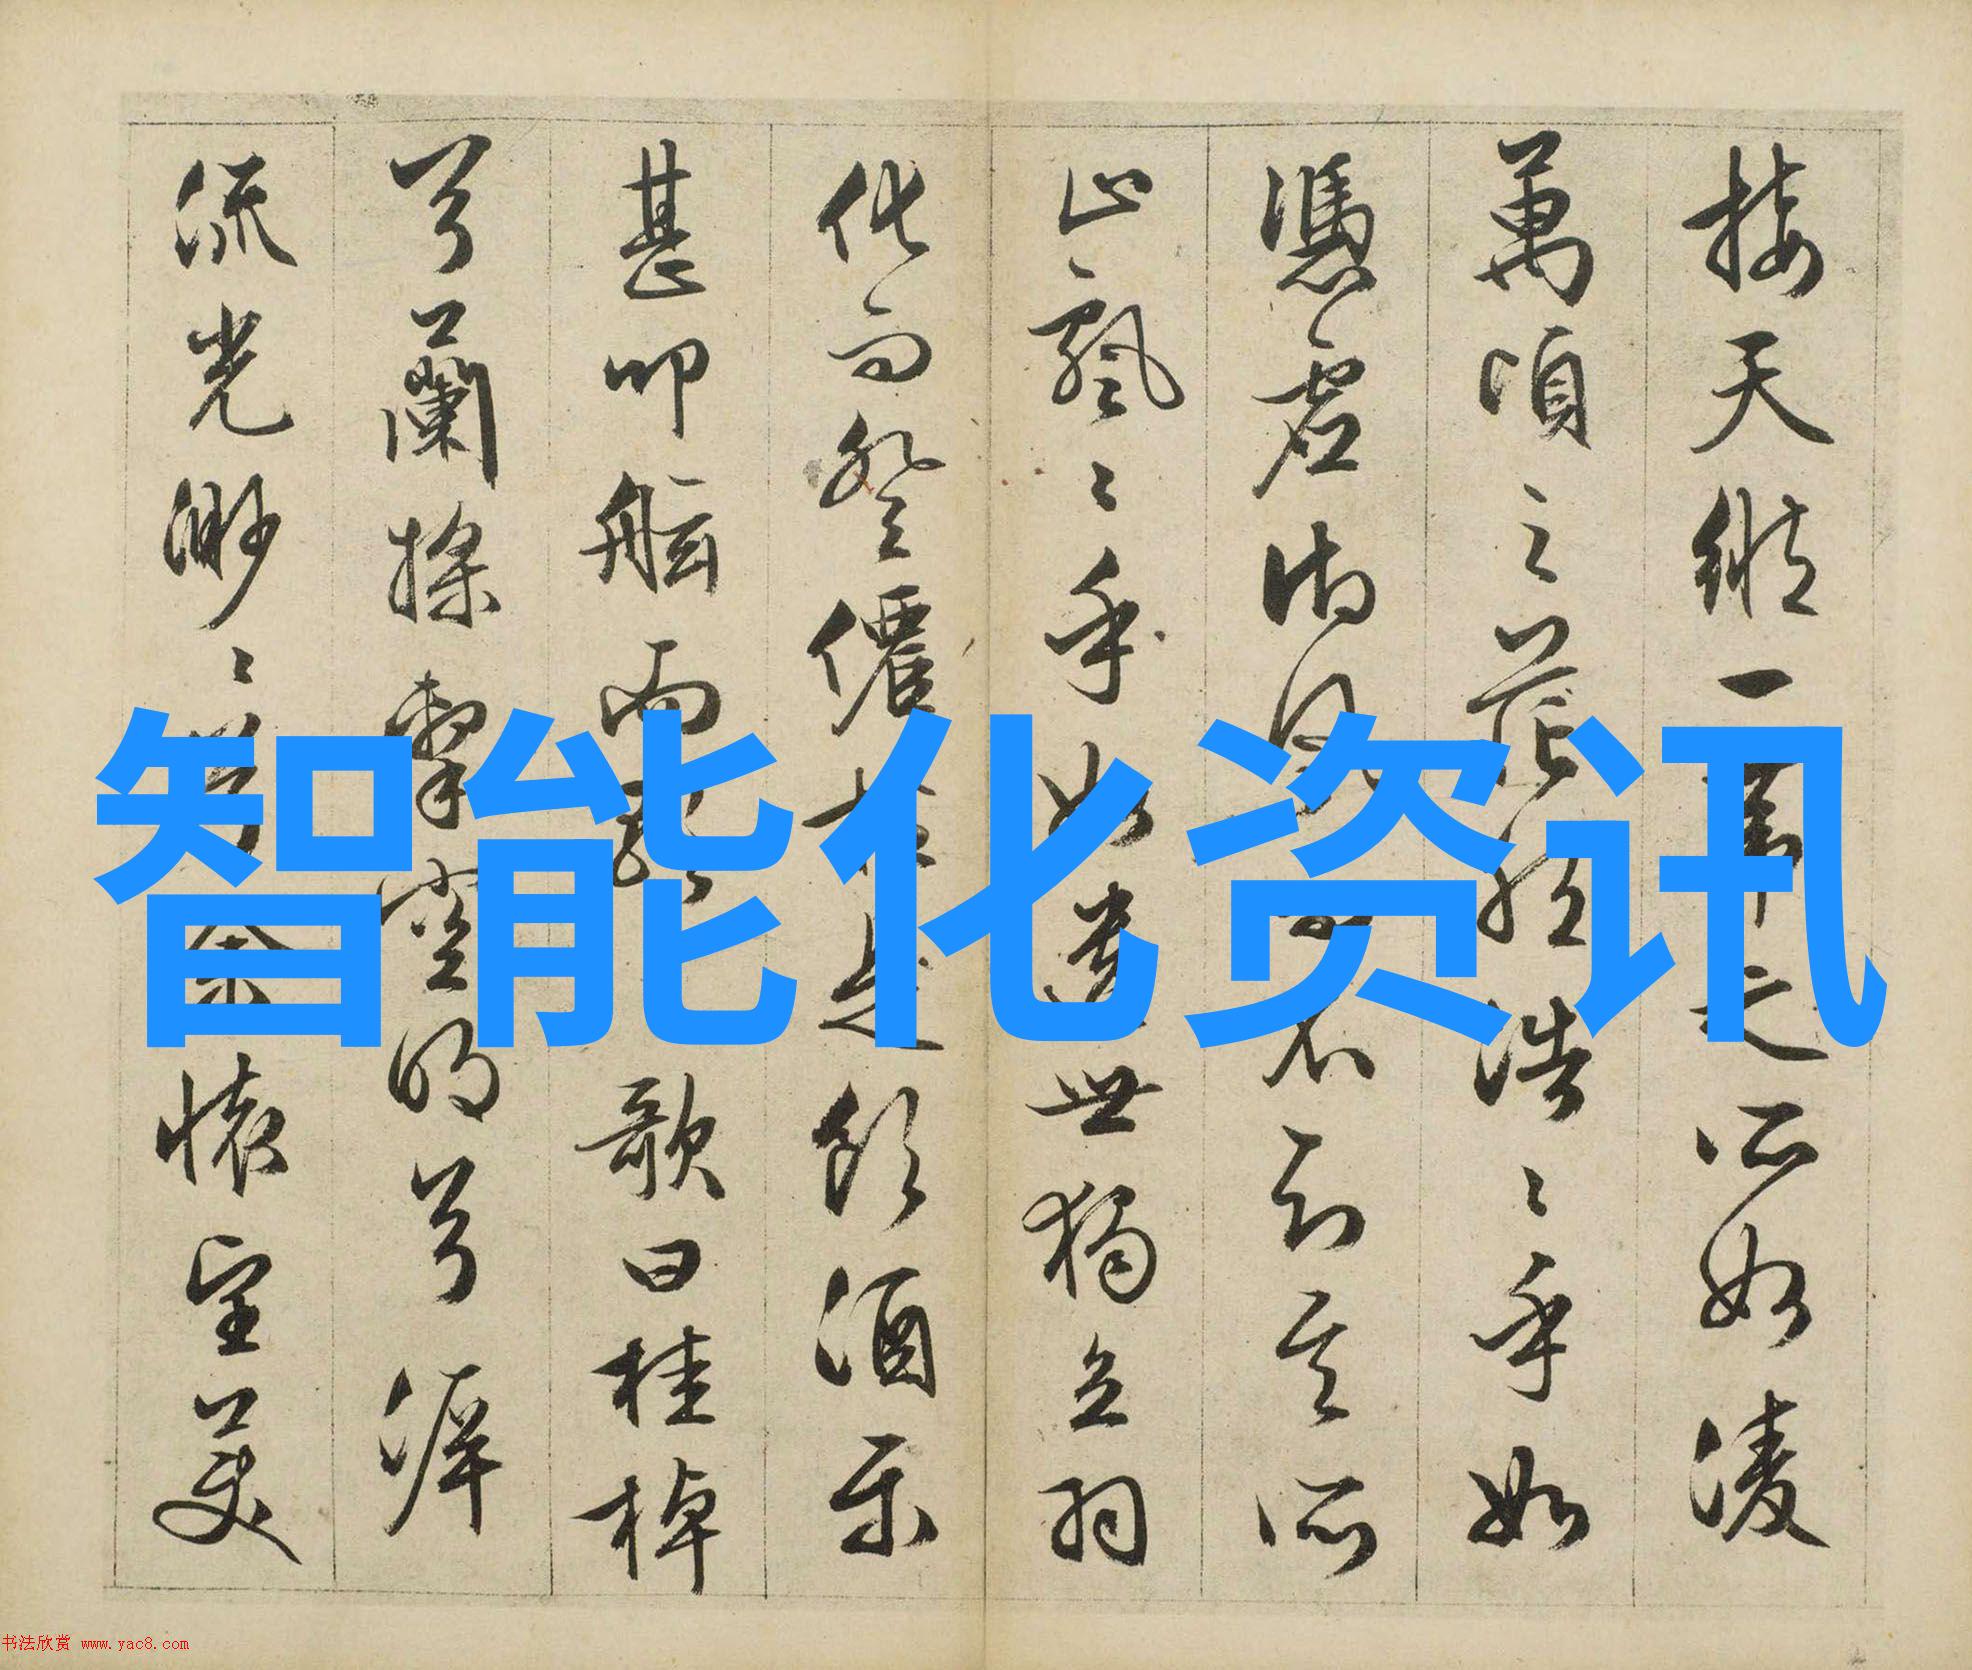 接天縱一葦之所如凌
萬頃之茫然浩〻乎如
憑虛御風而不知其所
止飄〻乎如遺世獨立羽
化而登僊於是飲酒樂
甚叩舷而歌歌曰桂棹
兮蘭槳擊空明兮泝
流光渺〻兮余懷望美
智能化资讯
书法欣赏 www.yac8.com